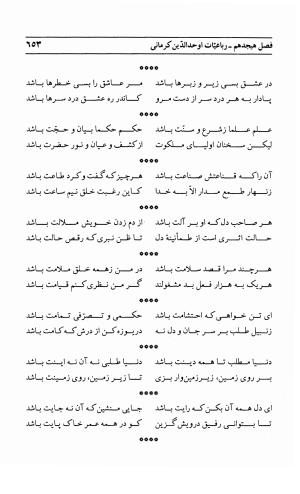 فصل هیجدهم ـ رباعیّات اوحدالدّین کرمانی / ۶۵۳
****
در عشق بسی زیر و زبرها باشد مر عاشق را بسی خطرها باشد
پا دار به هر درد سر از دست مرو کاندر ره عشق درد سرها باشد
****
علم علما ز شرع و سنّت باشد حکم حکما بیان و حجّت باشد
لیکن سخنان اولیای ملکوت از کشف و عیان و نور حضرت باشد
****
آن را که قناعتش صناعت باشد هرچیز که گفت و کرد طاعت باشد
زنهار طمع مدار الاّ به خدا کاین رغبت خلق نیم ساعت باشد
****
هر صاحب دل که او بر آلت باشد از دم زدن خویش ملالت باشد
حالت اثری است از طمأنینهٔ دل تا ظن نبری که رقص حالت باشد
****
هرچند مرا قصد سلامت باشد در من ز همه خلق ملامت باشد
هریک به هزار فعل بد مشغولند گر من نظری کنم قیامت باشد
****
ای تن خواهی که احتشامت باشد حکمی و تصرّفی تمامت باشد
زنبیل طلب بر سر جان و دل نه دریوزه کن از درش که کامت باشد
****
دنیا مطلب تا همه دینت باشد دنیا طلبی نه آن نه اینت باشد
بر روی زمین، زیرزمین‌وار بزی تا زیر زمین، روی زمینت باشد
****
ای دل همه آن بکن که رایت باشد جایی منشین که آن نه جایت باشد
تا بتوانی رفیق درویش گزین کو در همه عمر خاک پایت باشد
****